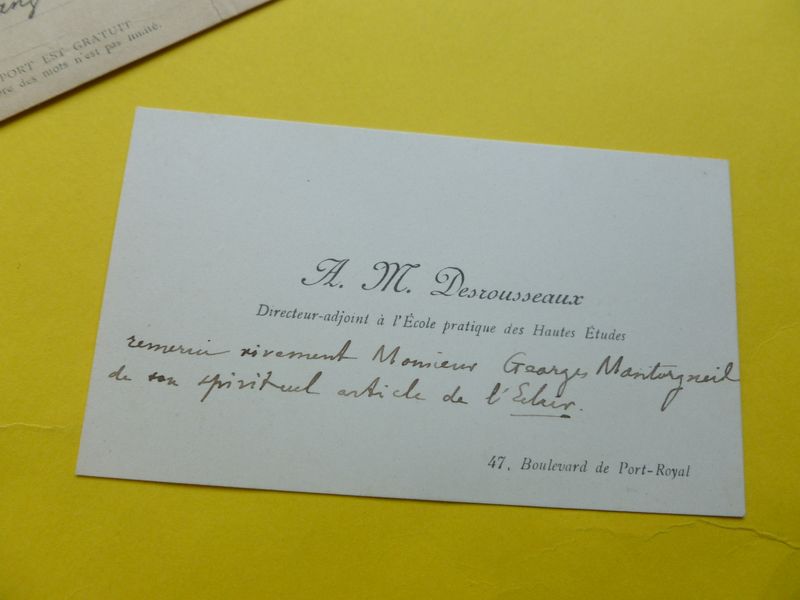 PORT EST GRATUIT
re des mots n'est pas limité.
A. M. Desrousseaux
Directeur-adjoint à l'École pratique des Hautes Études
remercie vivement Monsieur Georges Montorgueil
de son spirituel article de l'Éclair.
47, Boulevard de Port-Royal